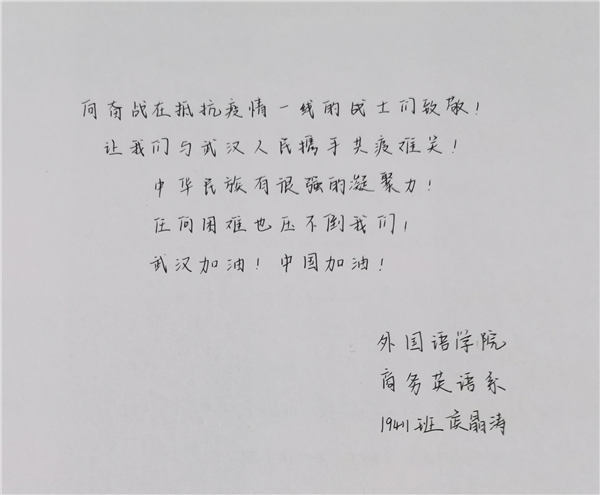 向奋战在抵抗疫情一线的战士们致敬！
让我们与武汉人民携手共疫难关！
中华民族有很强的凝聚力！
任何困难也压不倒我们！
武汉加油！中国加油！
外国语学院
商务英语系
1941班 晶涛